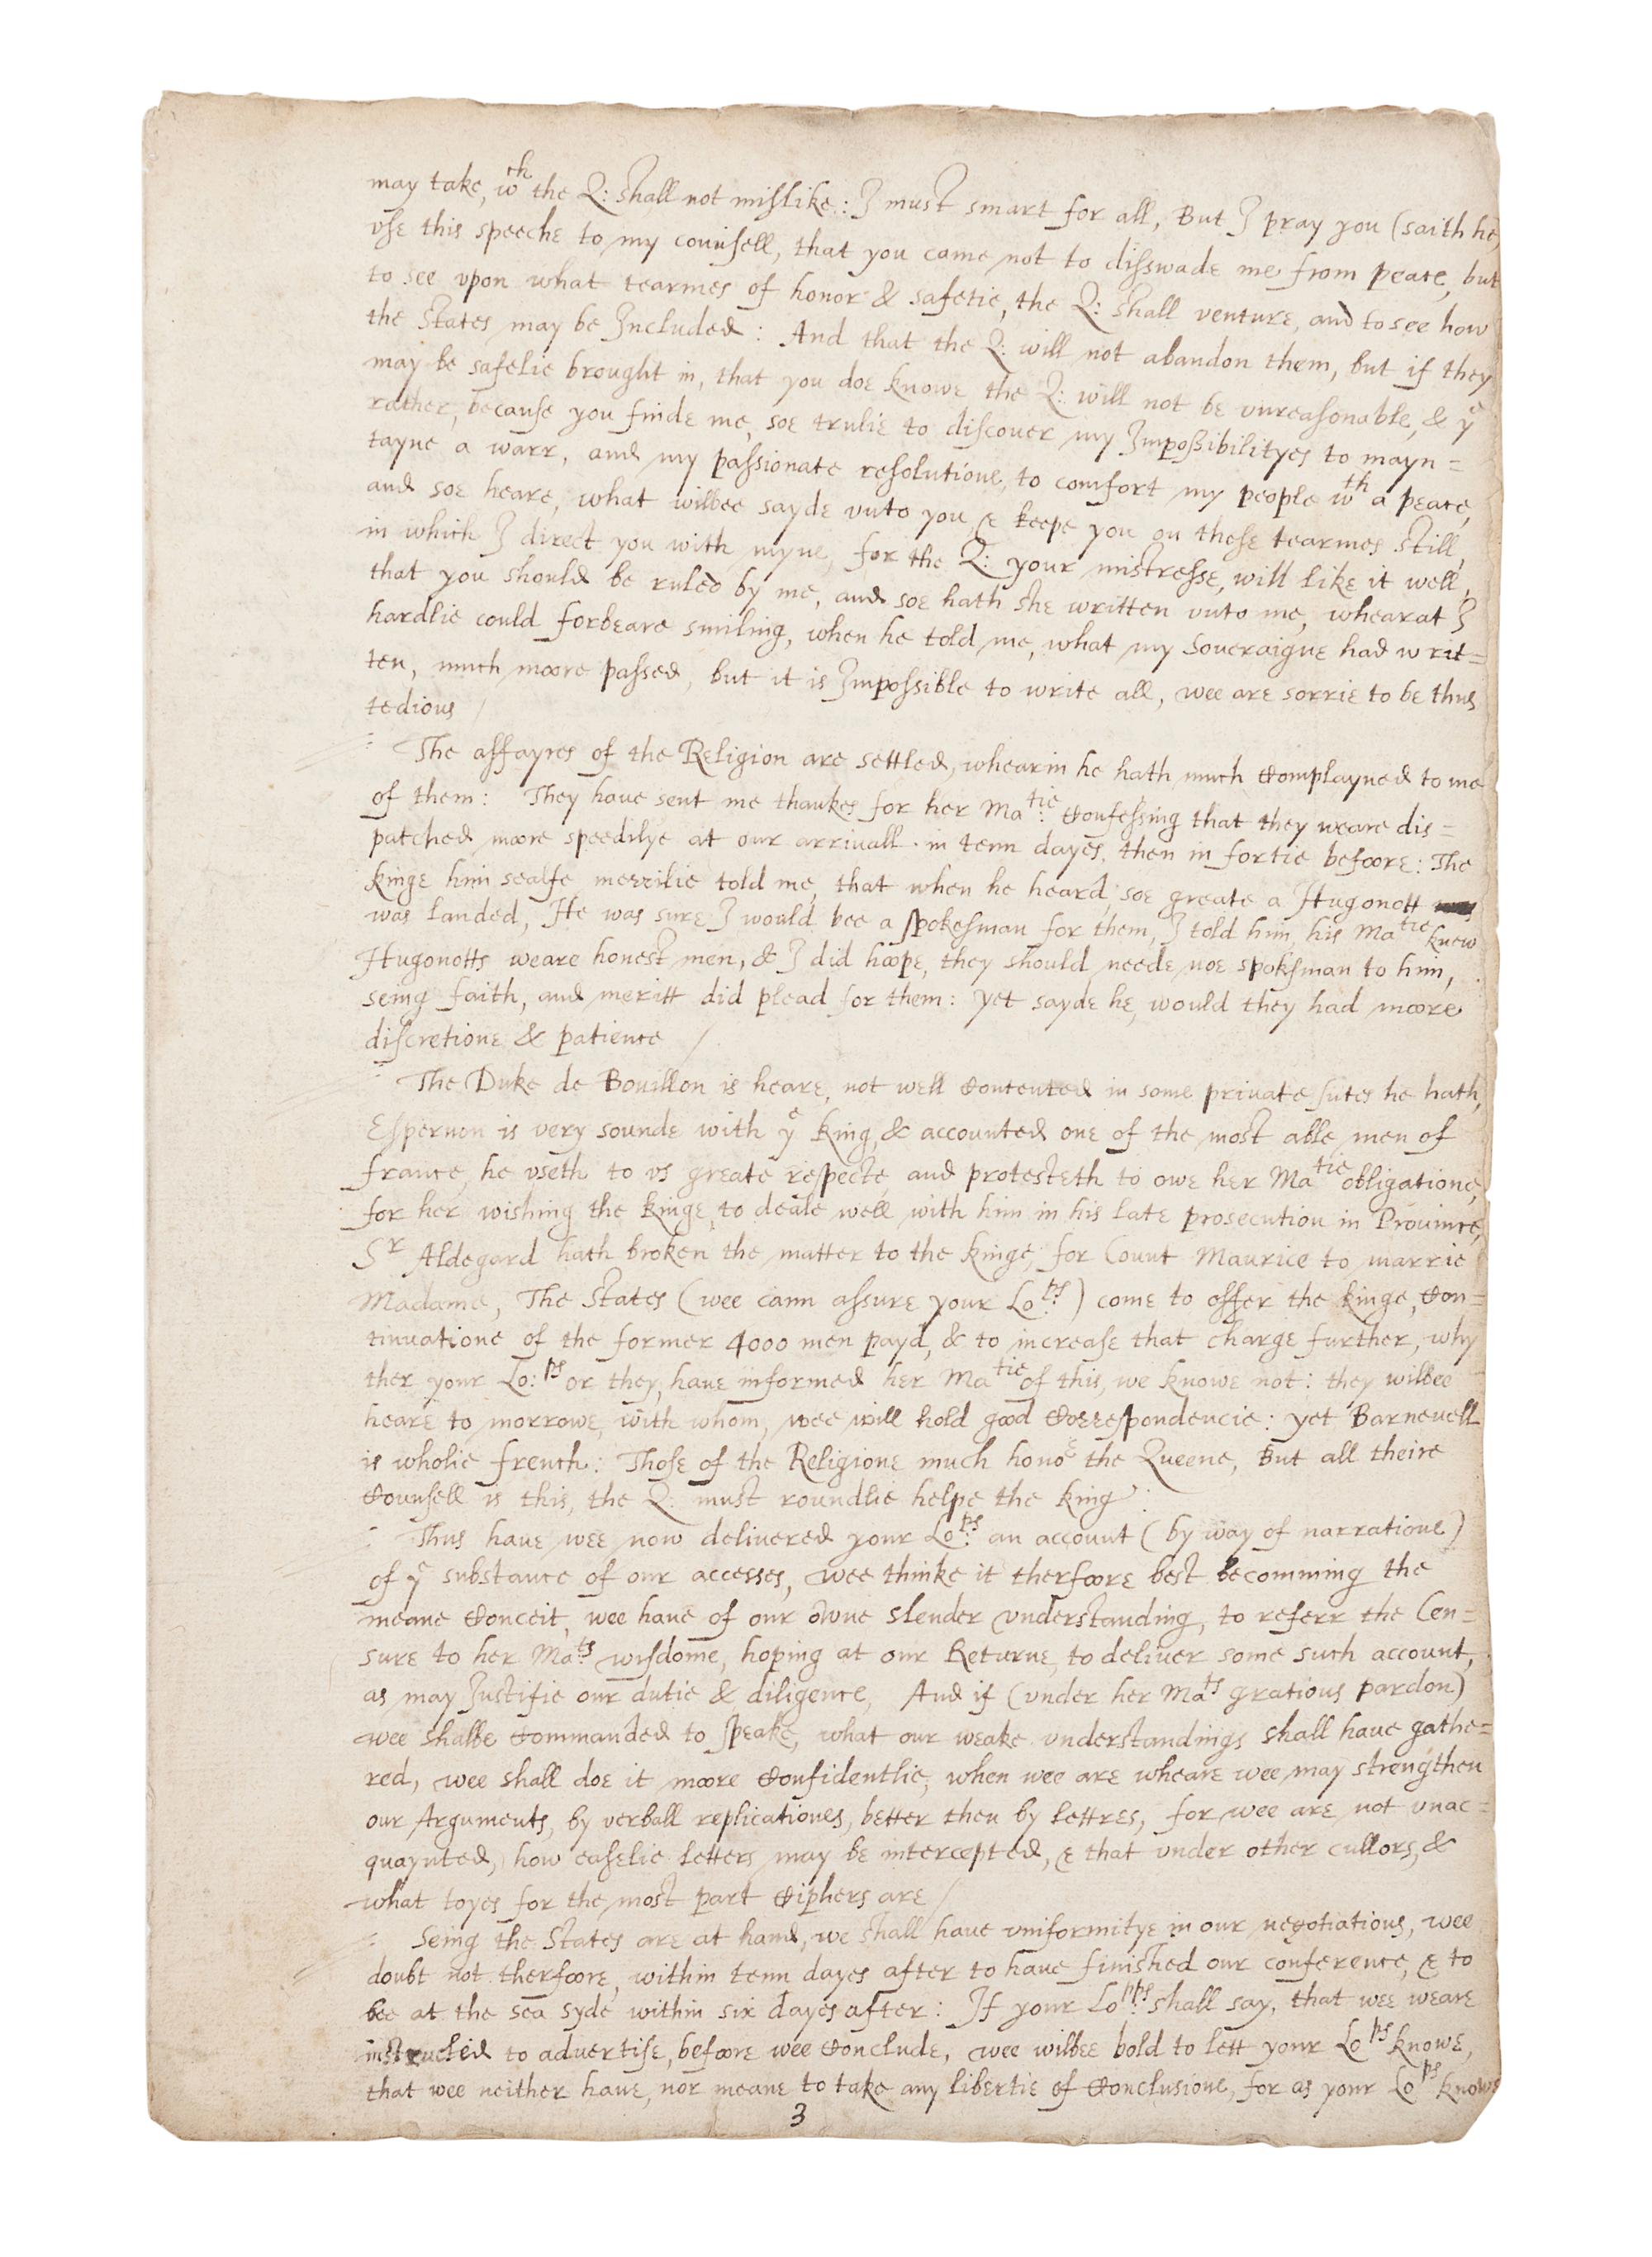 may take, wch the Q: shall not mislike: I must smart for all, But I pray you (saith he)
vse this speeche to my counsell, that you came not to disswade me from peace, but
to see vpon what tearmes of honor & safetie, the Q: shall venture, and to see how
the States may be Included: And that the Q: will not abandon them, but if they
may be safelie brought in, that you doe knowe the Q: will not be vnreasonable, & ye
rather, because you finde me, soe trulie to discouer my Impossibilityes to mayn=
tayne a warr, and my passionate resolutione, to comfort my people wth a peace,
and soe heare, what wilbee sayde vnto you & keepe you on these tearmes still,
in which I direct you with myne, for the Q: your mistresse, will like it well,
that you should be ruled by me, and soe hath she written vnto me, whearat I
hardlie could forbeare smiling, when he told me, what my Soueraigne had writ=
ten, much moore passed, but it is Impossible to write all, wee are sorrie to be thus
tedious /
The affayres of the Religion are settled, whearin he hath much Complayned to me
of them: They haue sent me thankes for her Matie: Confessing that they weare dis=
patched moore speedilye at our arriuall in tenn dayes, then in fortie befoore: The
kinge him sealfe merrilie told me, that when he heard, soe greate a Hugonott
was landed, He was sure I would bee a spokesman for them, I told him, his Matie knew
Hugonotts weare honest men, & I did hoope, they should neede noe spoksman to him,
seing faith, and meritt did plead for them: yet sayde he, would they had moore
discretione & patience /
The Duke de Bouillon is heare, not well Contented in some private sutes he hath,
Espernon is very sounde with ye King, & accounted one of the most able men of
france, he vseth to vs greate respecte, and protesteth to owe her Matie obligatione,
for her wishing the kinge, to deale well with him in his late prosecution in Province,
Sr Aldegard hath broken the matter to the kinge, for Count Maurice to marrie
Madame, The States (wee cann assure your Lops:) come to offer the kinge, Con=
tinuatione of the former 4000 men payd, & to increase that charge further, why
ther your Lo:ps or they, haue informed her Matie of this, we knowe not: they wilbee
heare to morrowe, with whom, wee will hold good Correspondencie: yet Barneuell
is wholie french: Those of the Religione much honor the Queene, But all theire
Counsell is this, the Q: must roundlie helpe the king:
Thus haue wee now delivered your Lops: an account (by way of narratione)
of ye substance of our accesses, wee thinke it therfoore best becomming the
meane Conceit, wee haue of our owne slender vnderstanding, to referr the Cen=
sure to her Mats: wisdome, hoping at our Returne, to deliuer some such account,
as may Justifie our dutie & diligence, And if (vnder her Mats gratious pardon)
wee shalbe Commanded to speake, what our weake vnderstandings shall haue gathe=
red, wee shall doe it moore Confidentlie, when wee are wheare wee may strengthen
our Arguments, by verball replicationes, better then by lettres, for wee are not vnac=
quaynted, how easelie letters may be intercepted, & that vnder other cullors, &
what toyes for the most part Ciphers are /
Seing the States are at hand, we shall haue vniformitye in our negotiations, wee
doubt not therfoore, within tenn dayes after to haue finished our conference, & to
bee at the sea syde within six dayes after: If your Lopps: shall say, that wee weare
instructed to advertise, befoore wee Conclude, wee wilbee bold to lett your Lops knowe,
that wee neither haue, nor meane to take any libertie of Conclusione, for as your Lops knowe
3